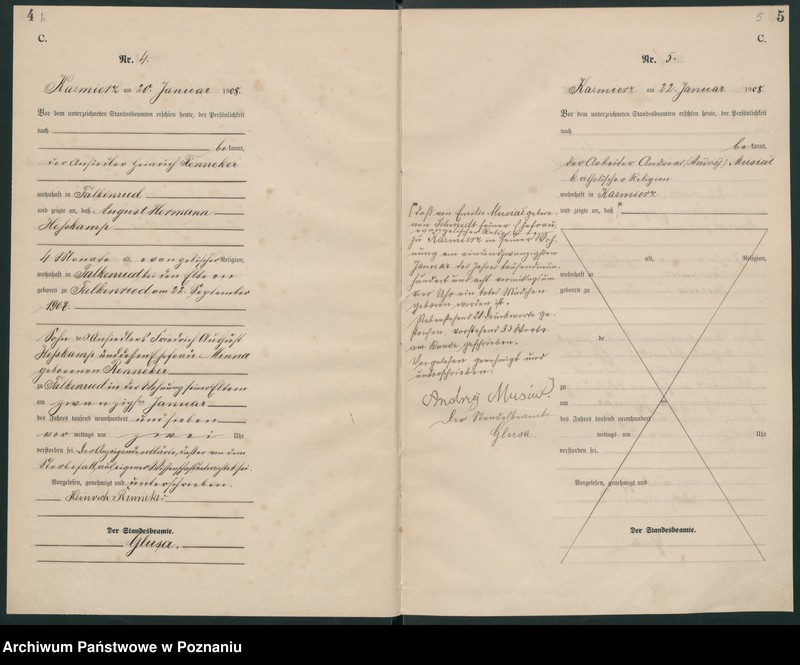 4
C.
Nr. 4.
Kazmierz am 20. Januar 1908.
Vor dem unterzeichneten Standesbeamten erschien heute, der Persönlichkeit
nach
bekannt,
der Ansiedler Heinrich Rönneker
wohnhaft in Falkenried
und zeigte an, daß August Hermann
Hefskamp
4 Monate alt, evangelischer Religion,
wohnhaft in Falkenried bei den Eltern
geboren zu Falkenried am 22. September
1907.
Sohn des Ansiedlers Friedrich August
Hefskamp und dessen Ehefrau Minna
geborenen Rönneker
zu Falkenried in der Wohnung seiner Eltern
am zwanzigsten Januar
des Jahres tausend neunhundert und sieben
vor mittags um zwei Uhr
verstorben sei. Der Anzeigende erklärte, daß er von dem
Sterbefall aus eigener Wissenschaft unterrichtet sei.
Vorgelesen, genehmigt und unterschrieben.
Heinrich Rönneker
Der Standesbeamte.
Glusa.
5
5
C.
Nr. 5.
Kazmierz am 22. Januar 1908
Vor dem unterzeichneten Standesbeamten erschien heute, der Persönlichkeit
nach
bekannt,
der Arbeiter Andreas (Andrzej) Musial
katholischer Religion
wohnhaft in Kazmierz
und zeigte an, daß
daß von Emilie Musial gebore-
nen Schmidt seiner Ehefrau,
evangelischer Religion
zu Kazmierz in seiner Woh-
nung am einundzwanzigsten
Januar des Jahres tausendneun-
hundert und acht vormittags um
vier Uhr ein totes Mädchen
geboren worden ist.
Nebenstehend 21 Druckworte ge-
strichen, vorstehend 33 Worte
am Rande geschrieben.
Vorgelesen genehmigt und
unterschrieben:
Andrzej Musiał.
Der Standesbeamte
Glusa.
alt, Religion,
wohnhaft in
geboren zu
de
zu
am
des Jahres tausend neunhundert
mittags um Uhr
verstorben sei.
Vorgelesen, genehmigt und
Der Standesbeamte.
Archiwum Państwowe w Poznaniu